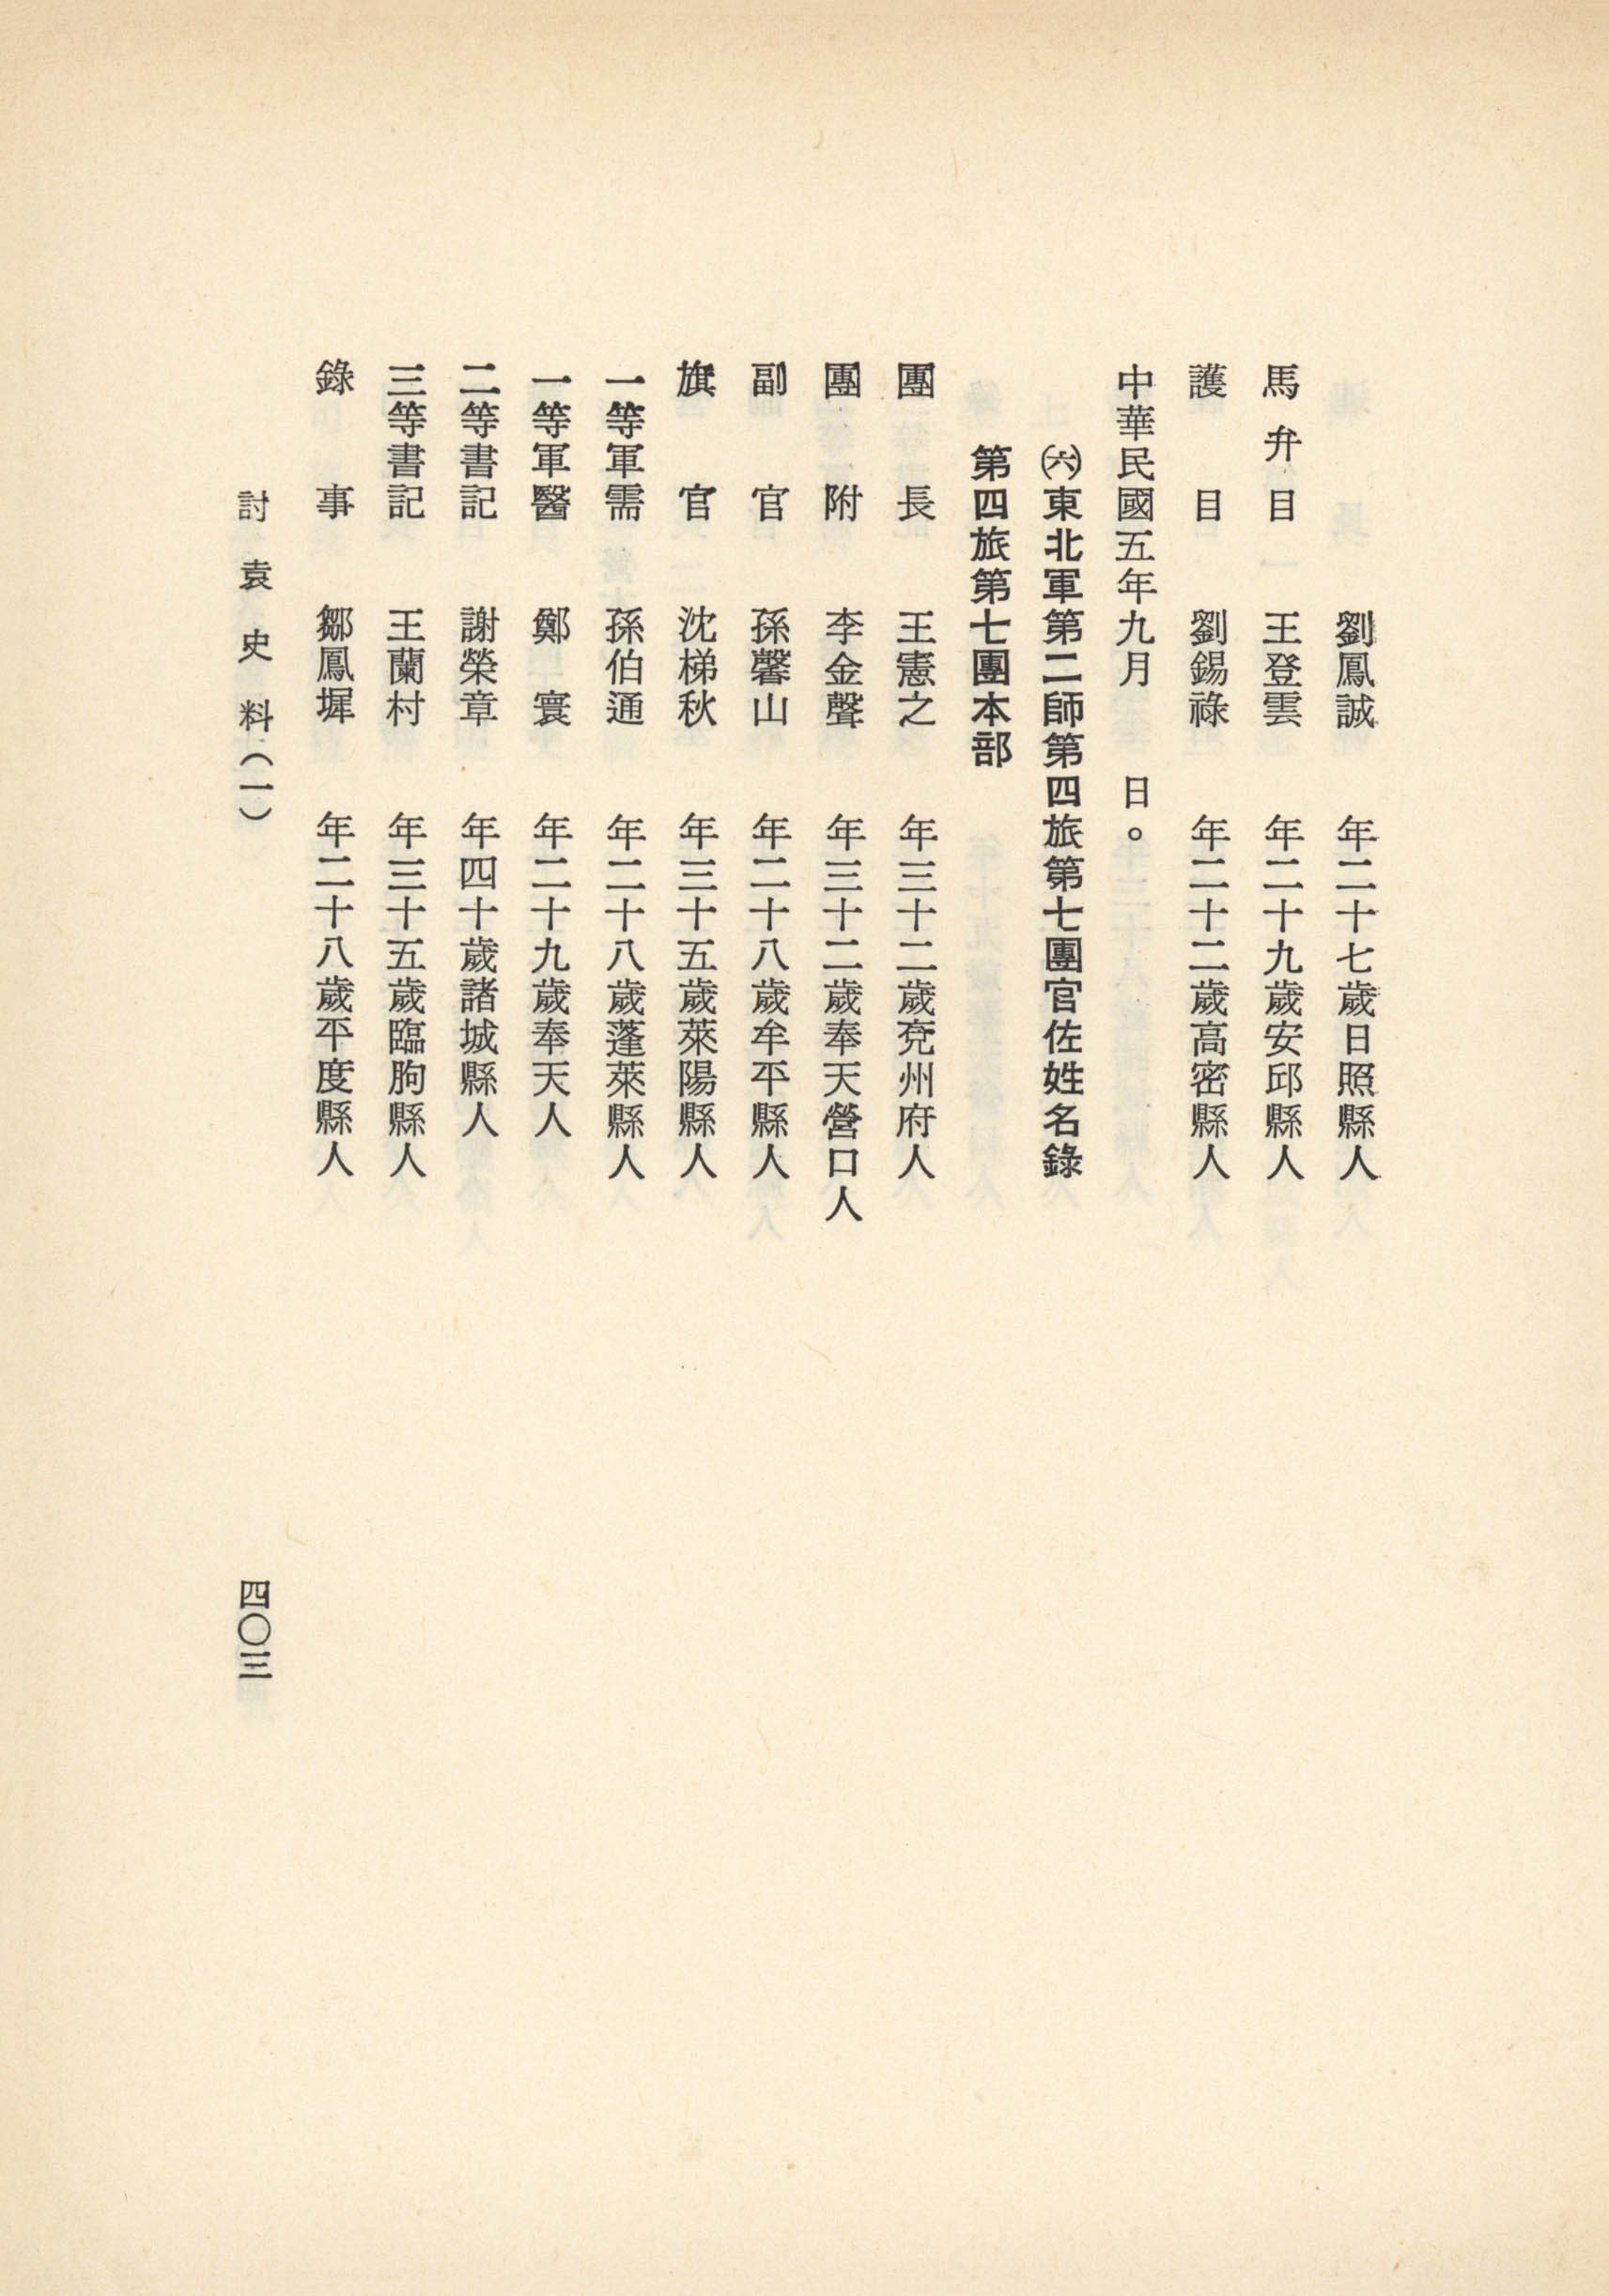 劉鳳誠　年二十七歲日照縣人
馬弁目　王登雲　年二十九歲安邱縣人
護目　劉錫祿　年二十二歲高密縣人
中華民國五年九月　日。
㈥東北軍第二師第四旅第七團官佐姓名錄
第四旅第七團本部
團長　王憲之　年三十二歲兗州府人
團附　李金聲　年三十二歲奉天營口人
副官　孫馨山　年二十八歲牟平縣人
旗官　沈梯秋　年三十五歲萊陽縣人
一等軍需　孫伯通　年二十八歲蓬萊縣人
一等軍醫　鄭寰　年二十九歲奉天人
二等書記　謝榮章　年四十歲諸城縣人
三等書記　王蘭村　年三十五歲臨朐縣人
錄事　鄒鳳墀　年二十八歲平度縣人
討袁史料（一）
四〇三